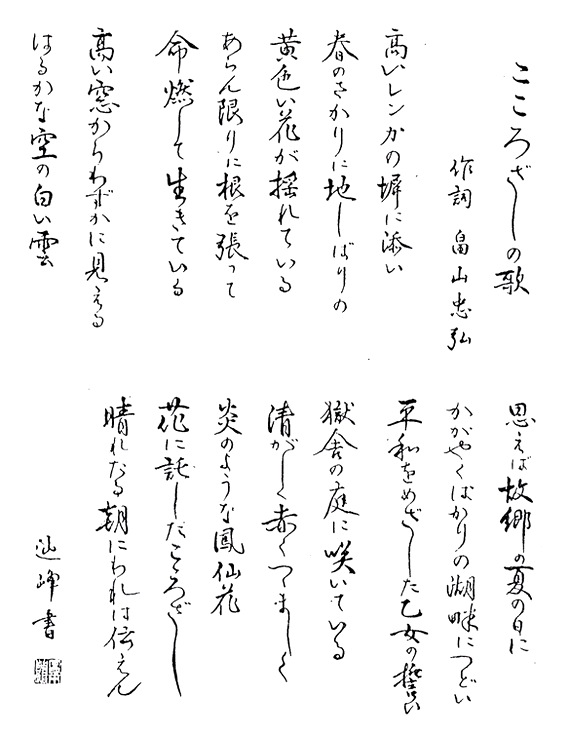 こころざしの歌
作詞 畠山忠弘
高いレンガの塀に添い
春のさかりに地しばりの
黄色い花が揺れている
あらん限りに根を張って
命燃して生きている
高い窓からわずかに見える
はるかな空の白い雲
思えば故郷の夏の日に
かがやくばかりの湖畔につどい
平和をめざした乙女の誓い
獄舎の庭に咲いている
清がしく赤くつつましく
炎のような鳳仙花
花に託したこころざし
晴れたる朝にわれは伝えん
峰書